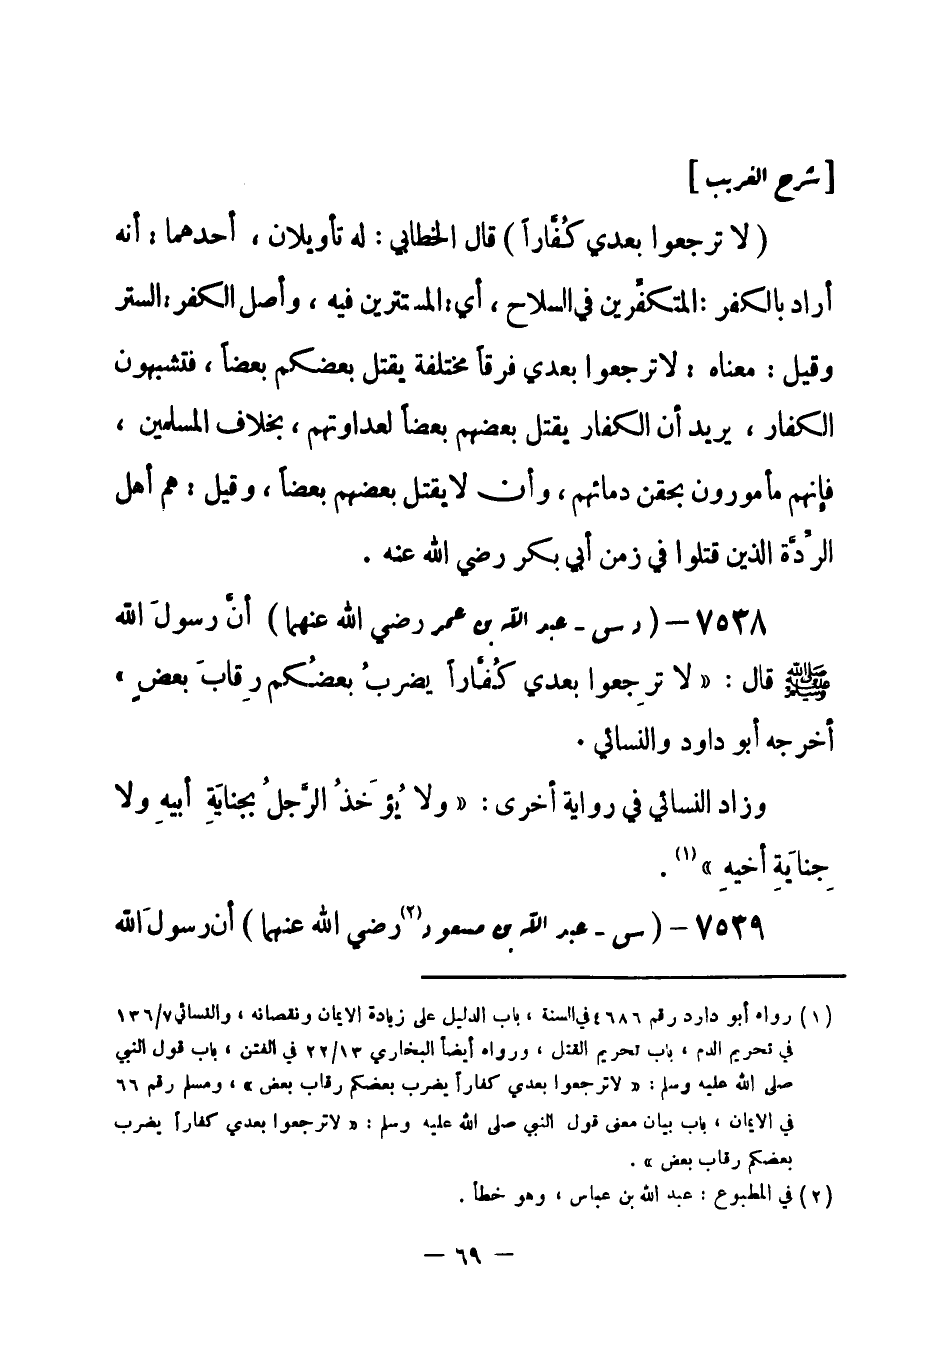 [ شرح الغريب ]
( لا ترجعوا بعدي كُفَّاراً ) قال الخطابي : له تأويلان ، أحدهما : أنه
أراد بالكفر : المتكفِّرين في السلاح ، أي : المستترين فيه ، وأصل الكفر : الستر
وقيل : معناه : لا ترجعوا بعدي فرقاً مختلفة يقتل بعضكم بعضاً ، فتشبهون
الكفار ، يريد أن الكفار يقتل بعضهم بعضاً لعداوتهم ، بخلاف المسلمين ،
فإنهم مأمورون بحقن دمائهم ، وأن لا يقتل بعضهم بعضاً ، وقيل : هم أهل
الرِّدَّة الذين قتلوا في زمن أبي بكر رضي الله عنه .
٧٥٣٨ – ( د س – عبد الله بن عمر رضي الله عنهما ) أنَّ رسولَ الله
ﷺ قال : « لا ترجِعوا بعدي كُفَّاراً يضربُ بعضُكم رِقابَ بعضٍ »
أخرجه أبو داود والنسائي .
وزاد النسائي في رواية أخرى : « ولا يُؤخَذُ الرَّجلُ بجِنايَةِ أبيهِ ولا
جِنايَةِ أخيهِ » (١) .
٧٥٣٩ – ( س – عبد الله بن مسعود (٢) رضي الله عنهما ) أن رسولَ الله
(١) رواه أبو داود رقم ٤٦٨٦ في السنة ، باب الدليل على زيادة الايمان ونقصانه ، والنسائي ١٣٦/٧
في تحريم الدم ، باب تحريم القتل ، ورواه أيضاً البخاري ٢٢/١٣ في الفتن ، باب قول النبي
صلى الله عليه وسلم : « لا ترجعوا بعدي كفاراً يضرب بعضكم رقاب بعض » ، ومسلم رقم ٦٦
في الايمان ، باب بيان معنى قول النبي صلى الله عليه وسلم : « لا ترجعوا بعدي كفاراً يضرب
بعضكم رقاب بعض » .
(٢) في المطبوع : عبد الله بن عباس ، وهو خطأ .
– ٦٩ –